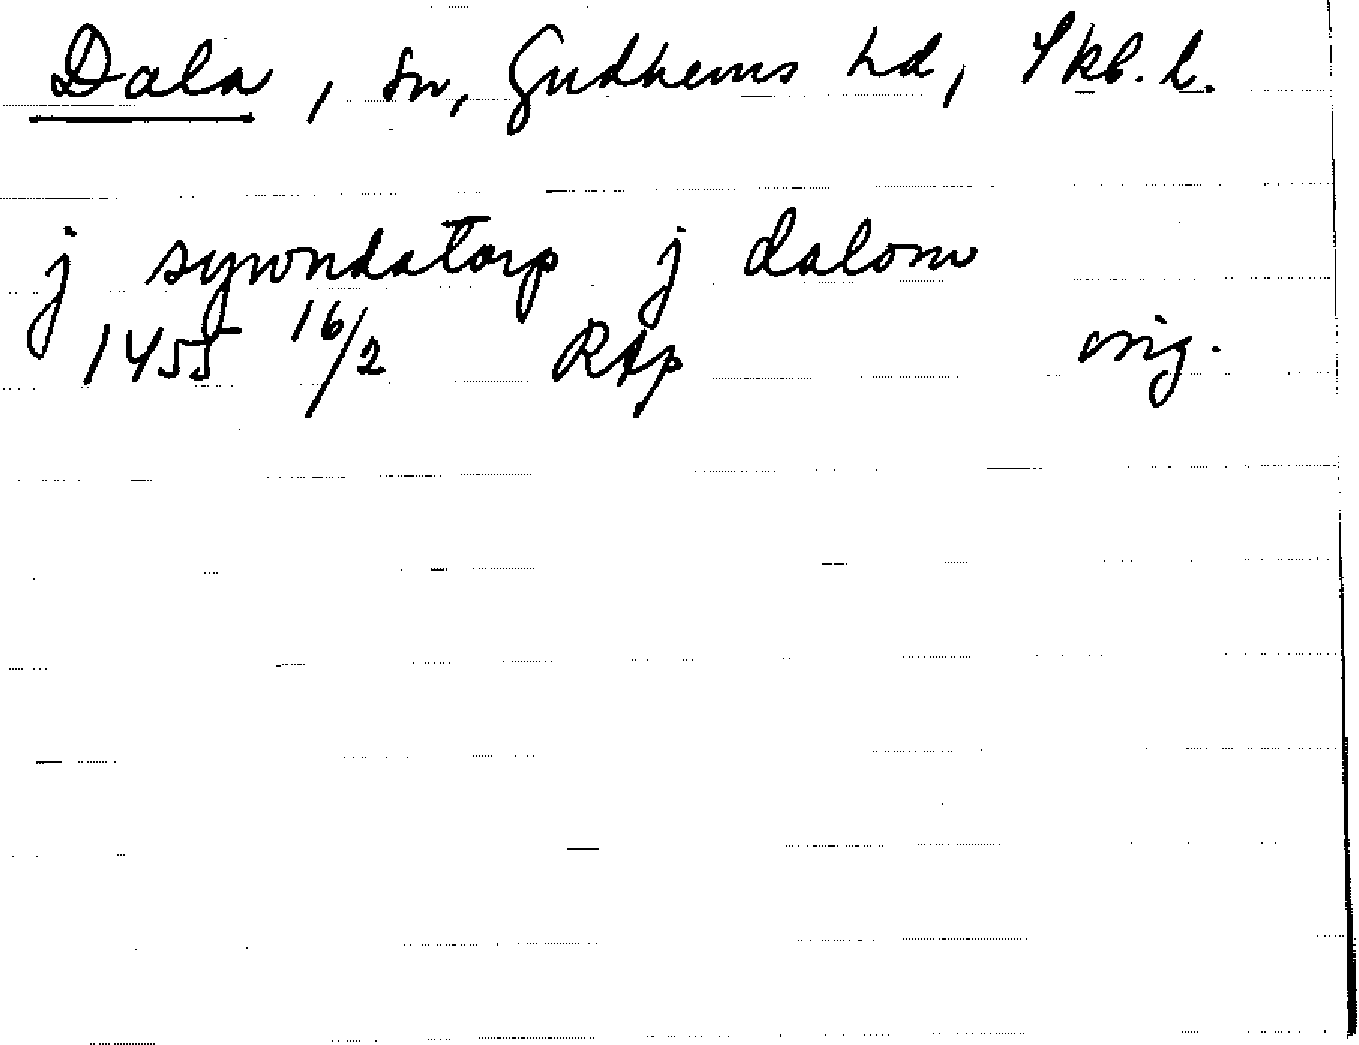 Dala, sn, Gudhems hd, Skb. l.
j symondatorp j dalom
1455 16/2 RAp orig.